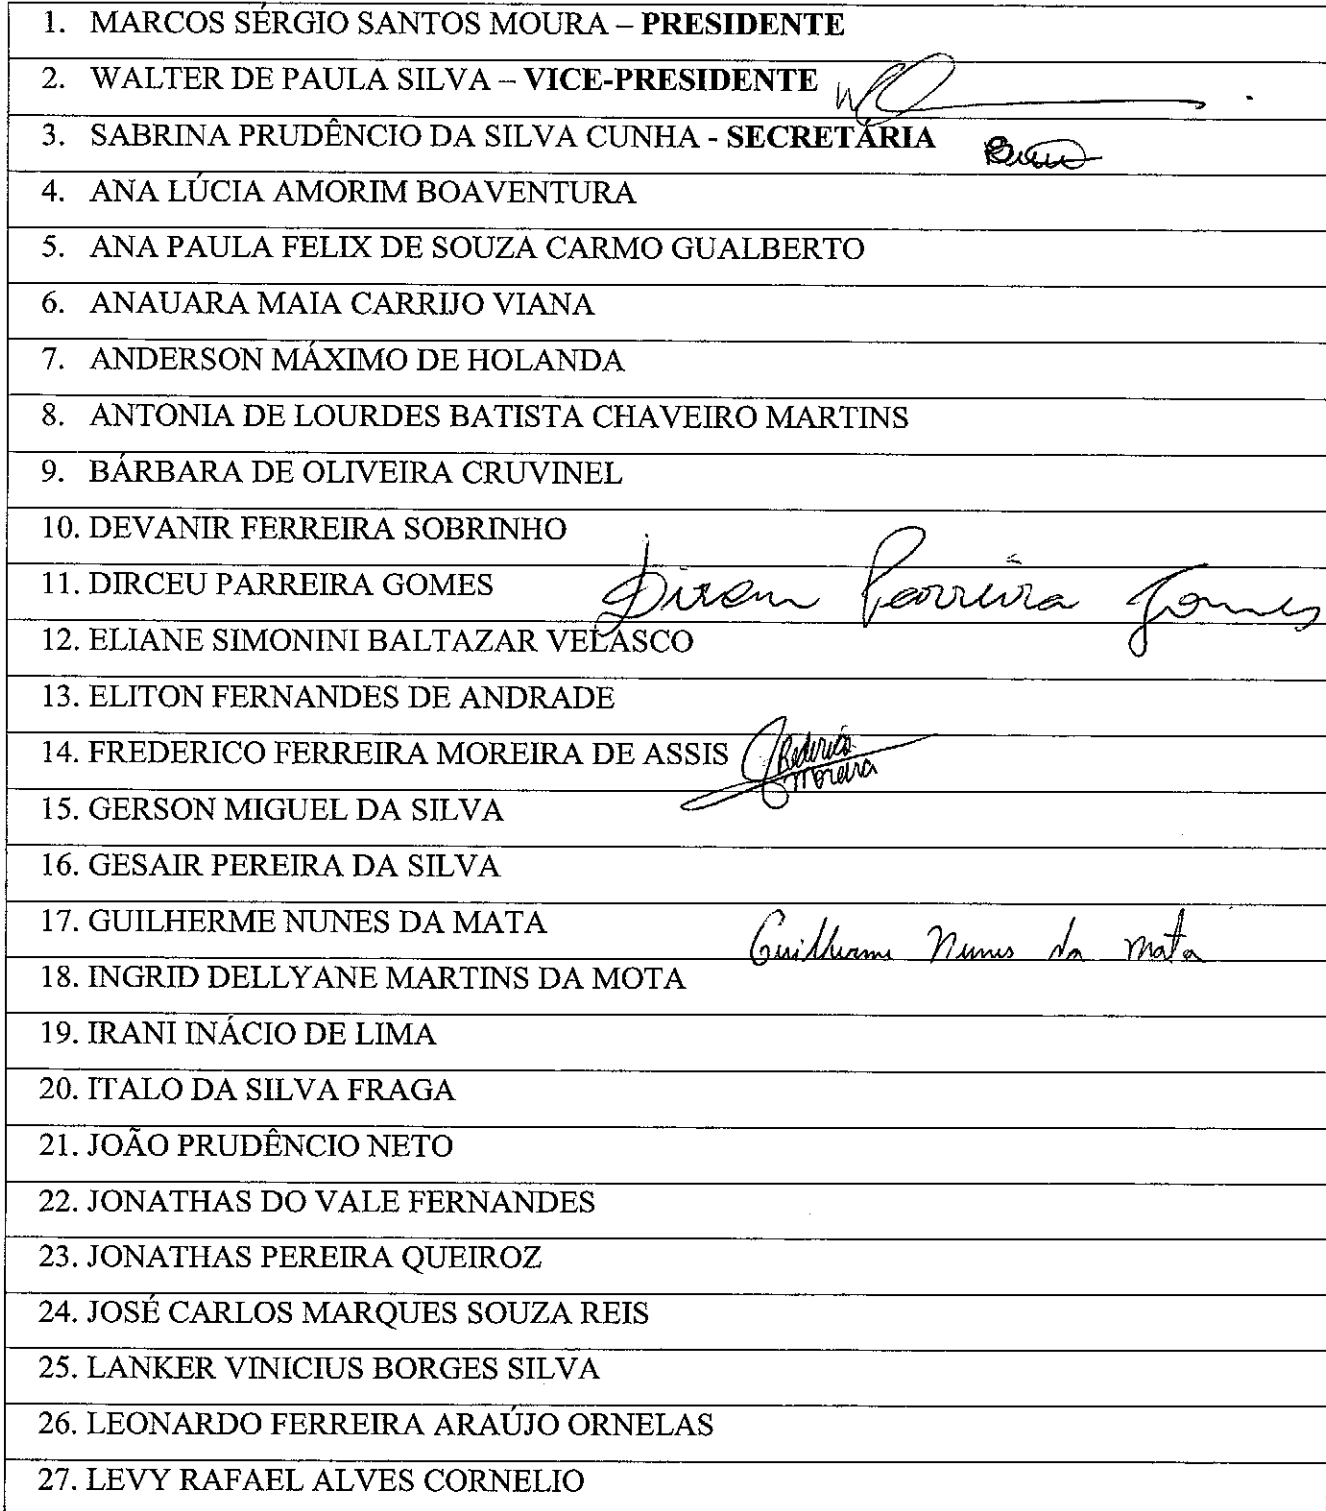 1. MARCOS SÉRGIO SANTOS MOURA – PRESIDENTE
2. WALTER DE PAULA SILVA – VICE-PRESIDENTE
3. SABRINA PRUDÊNCIO DA SILVA CUNHA - SECRETÁRIA
4. ANA LÚCIA AMORIM BOAVENTURA
5. ANA PAULA FELIX DE SOUZA CARMO GUALBERTO
6. ANAUARA MAIA CARRIJO VIANA
7. ANDERSON MÁXIMO DE HOLANDA
8. ANTONIA DE LOURDES BATISTA CHAVEIRO MARTINS
9. BÁRBARA DE OLIVEIRA CRUVINEL
10. DEVANIR FERREIRA SOBRINHO
11. DIRCEU PARREIRA GOMES Dirceu Parreira Gomes
12. ELIANE SIMONINI BALTAZAR VELASCO
13. ELITON FERNANDES DE ANDRADE
14. FREDERICO FERREIRA MOREIRA DE ASSIS Frederico
Moreira
15. GERSON MIGUEL DA SILVA
16. GESAIR PEREIRA DA SILVA
17. GUILHERME NUNES DA MATA Guilherme Nunes da Mata
18. INGRID DELLYANE MARTINS DA MOTA
19. IRANI INÁCIO DE LIMA
20. ITALO DA SILVA FRAGA
21. JOÃO PRUDÊNCIO NETO
22. JONATHAS DO VALE FERNANDES
23. JONATHAS PEREIRA QUEIROZ
24. JOSÉ CARLOS MARQUES SOUZA REIS
25. LANKER VINICIUS BORGES SILVA
26. LEONARDO FERREIRA ARAÚJO ORNELAS
27. LEVY RAFAEL ALVES CORNELIO